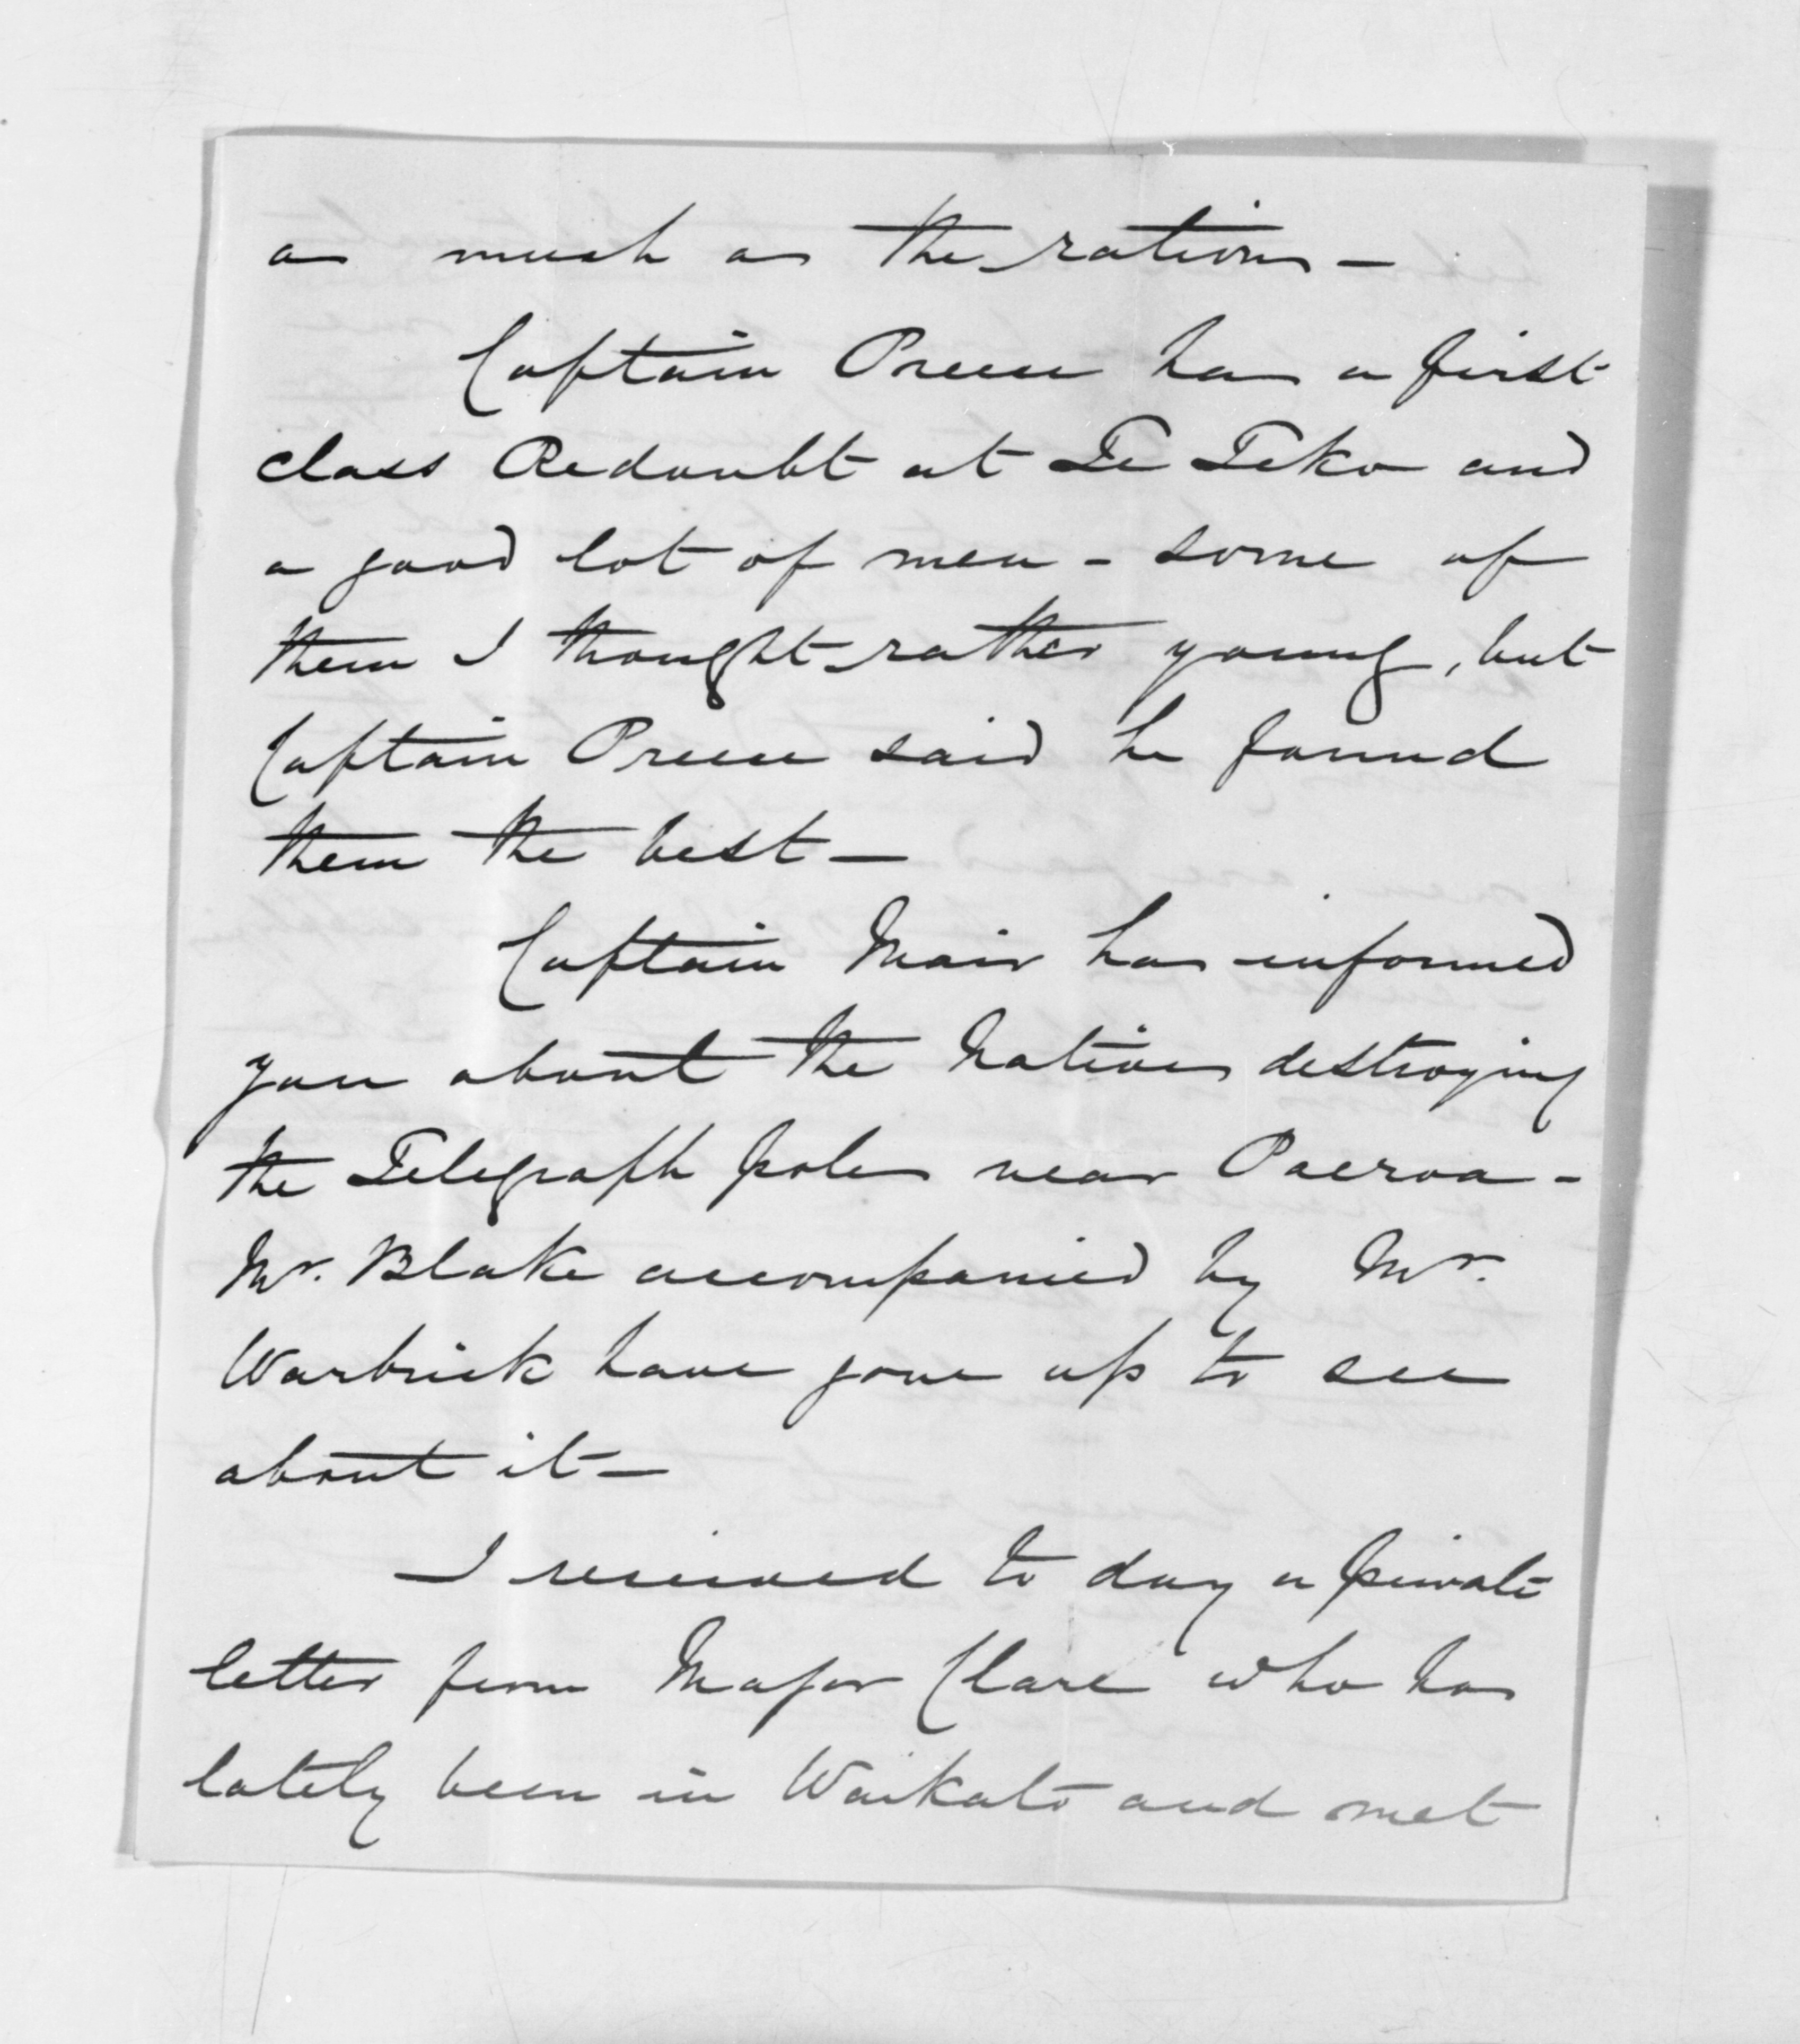 as much as the rations –
Captain Preece has a first
class Redoubt at Te Teko and
a good lot of men – some of
them I thought rather young, but
Captain Preece said he found
them the best –
Captain Mair has informed
you about the Natives destroying
the Telegraph poles near Paeroa –
Mr. Blake accompanied by Mr.
Warbrick have gone up to see
about it –
I received to day a private
letter from Major Clare who has
lately been in Waikato and met